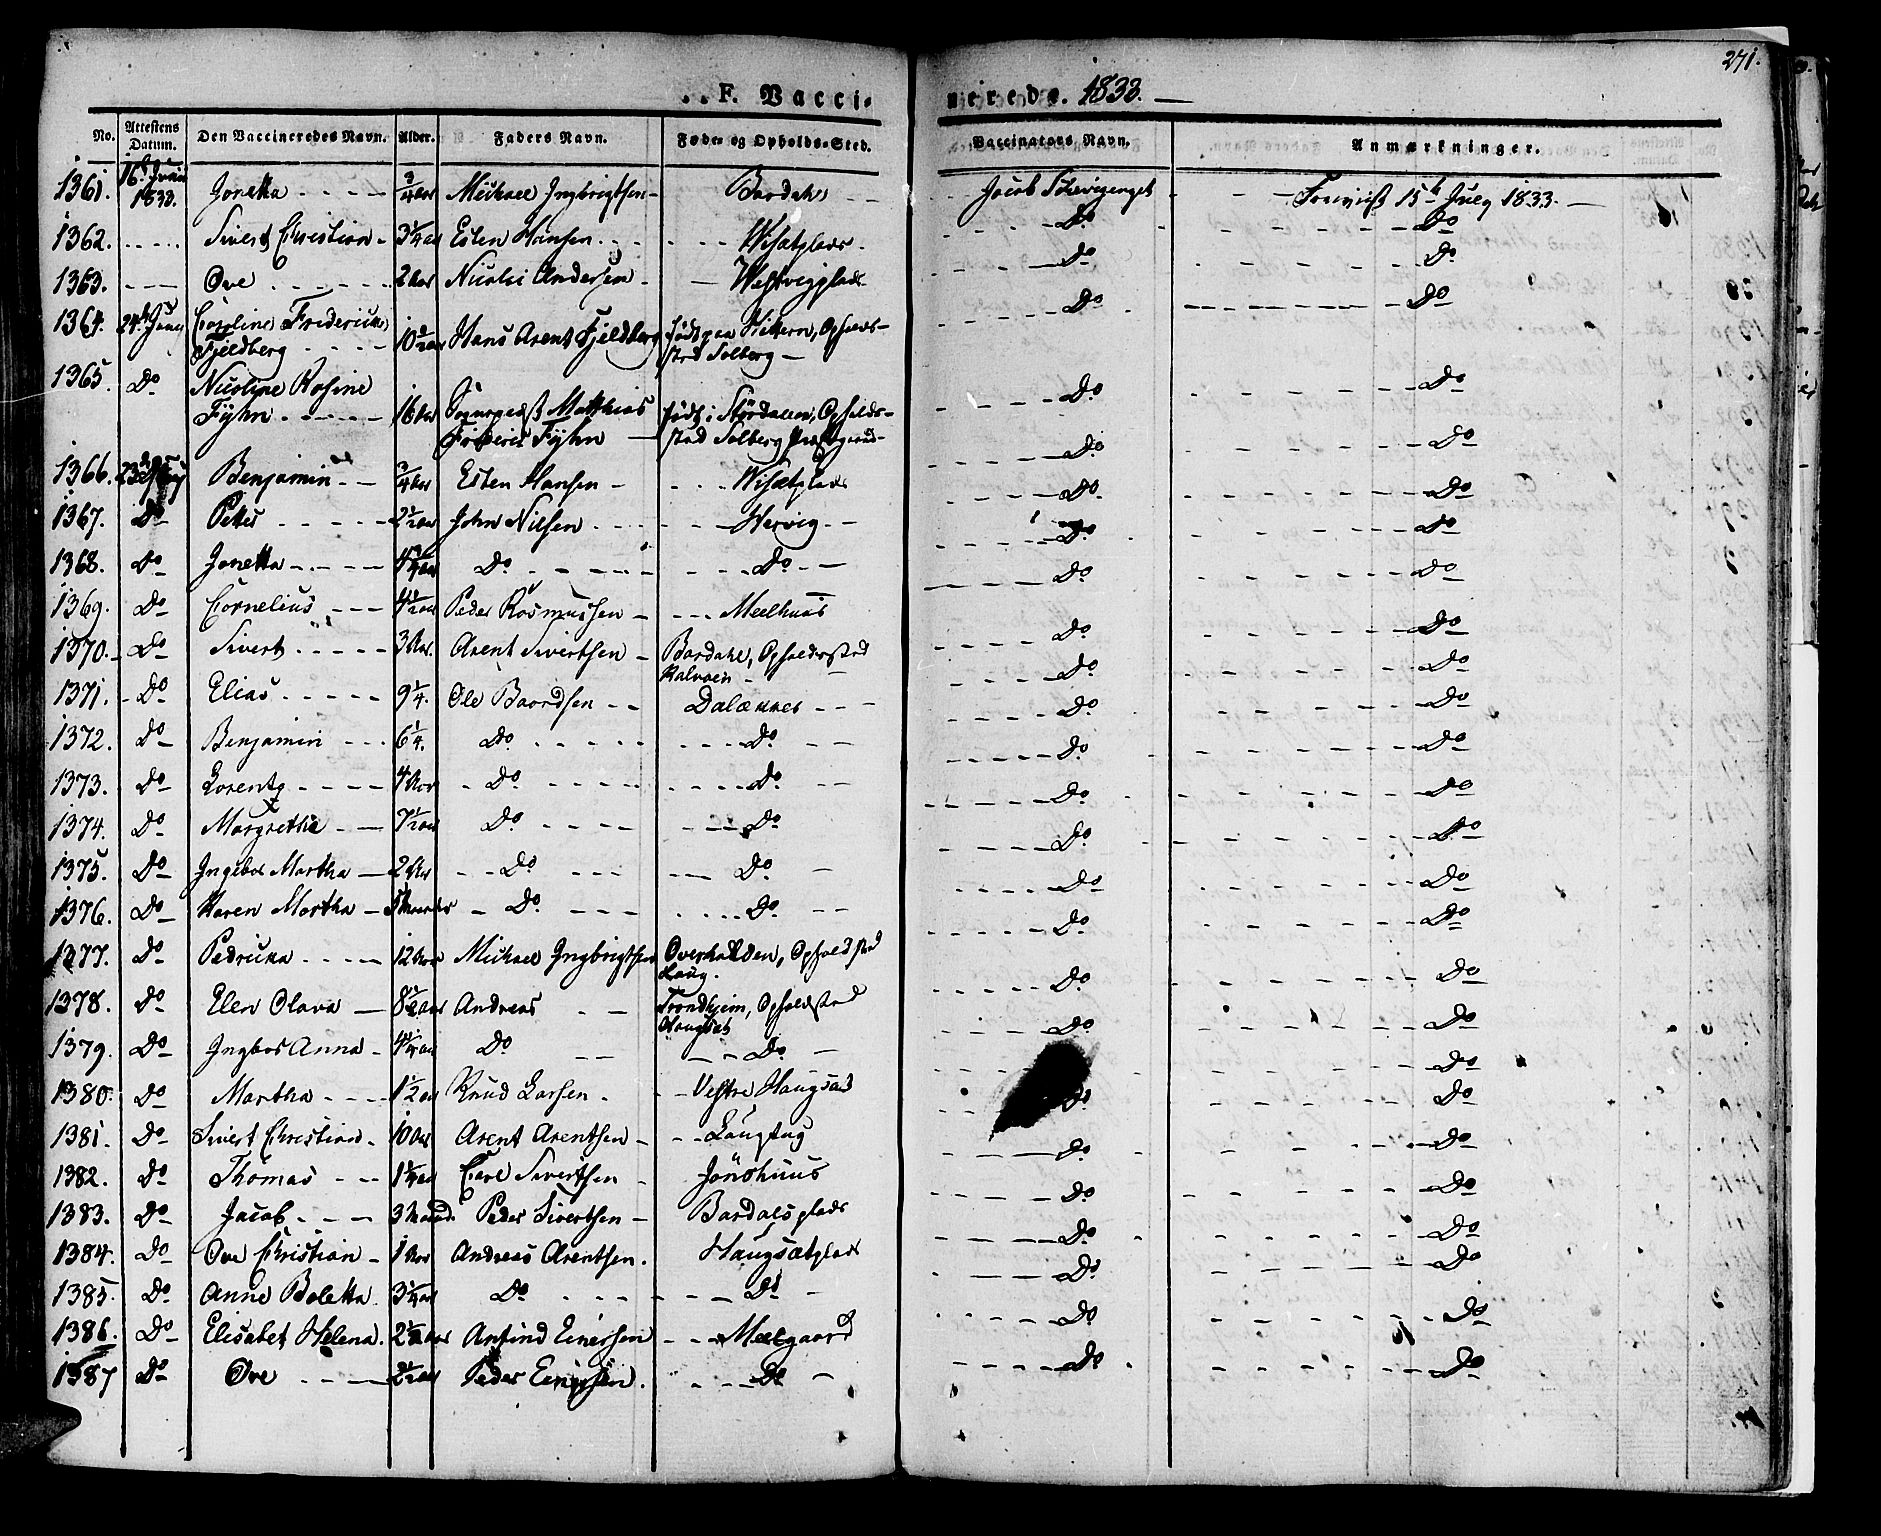 271.
F. Vaccinerede. 1833.
No. | Attestens Datum. | Den Vaccineredes Navn. | Alder. | Faders Navn. | Føde- og Opholds-Sted. | Vaccinators Navn. | Anmærkninger.
1361. | 16d 1833. | Jonetta | 3/4 Aar | Michael Ingbrigtsen | Bardahl | Jacob | 15de July 1833.
1362. | Sivert Christian | 3 1/4 aar | Esten Hansen | Wisætplads | Do | Do
1363. | Ove | 2 Aar | Nicolai Andersen | Do | Do
1364. | 24de | Caroline Fridericke Fjeldberg | 10 1/2 aar | Hans Arent Fjeldberg | Født paa Hittern, Opholds-sted Solberg | Do | Do
1365. | Do | Nicoline Rosine Fÿhn | 16 Aar | Mathias Fÿhn | Født i Størdalen, Opholds-sted Solberg | Do | Do
1366. | 23de | Benjamin | 3/4 Aar | Esten Hansen | Wisætplads | Do | Do
1367. | Do | Peter | 2 1/2 aar | John Nilsen | Wervig | Do | Do
1368. | Do | Jonetta | 4 3/4 aar | Do | Do | Do | Do
1369. | Do | Cornelius | 4 1/2 aar | Peder Rosmussen | Meelhuus | Do | Do
1370. | Do | Sivert | 3 Aar | Arent Sivertsen | Bardahl, Opholdssted Kalvøen | Do | Do
1371. | Do | Elias | 9 1/4. | Ole Baardsen | Dalækker | Do | Do
1372. | Do | Benjamin | 6 1/4. | Do | Do | Do | Do
1373. | Do | Lorentz | 4 Aar | Do | Do | Do | Do
1374. | Do | Margrethe | 7 1/2 aar | Do | Do | Do | Do
1375. | Do | Ingebor Martha | 2 Aar | Do | Do | Do | Do
1376. | Do | Karen Martha | Do | Do | Do | Do
1377. | Do | Pedricka | 12 Aar | Michael Ingbrigtsen | Overhalden, Opholdsted | Do | Do
1378. | Do | Elen Olava | 8 1/2 aar | Andreas | Trondhjem, Opholdsted Haugsæt | Do | Do
1379. | Do | Ingbor Anna | 4 1/4 aar | Do | Do | Do | Do
1380. | Do | Martha | 1 1/2 aar | Knud Larsen | Vestre Haugsæt | Do | Do
1381. | Do | Sivert Christian | 10 Aar | Arent Arentsen | Do | Do
1382. | Do | Thomas | 1 1/4 aar | Carl Sivertsen | Jönshuus | Do | Do
1383. | Do | Jacob | 3 Maaned. | Peder Sivertsen | Bardalsplads | Do | Do
1384. | Do | Ove Christian | 1 Aar | Andreas Arentsen. | Haugsætplads | Do | Do
1385. | Do | Anne Boletta | 3 1/4 aar | Do | Do | Do | Do
1386. | Do | Elisabet Helena. | 2 1/2 aar | Anfind Einersen | Mælgaard | Do | Do
1387 | Do | Ove | 2 1/2 aar | Peder Einersen. | Do | Do | Do